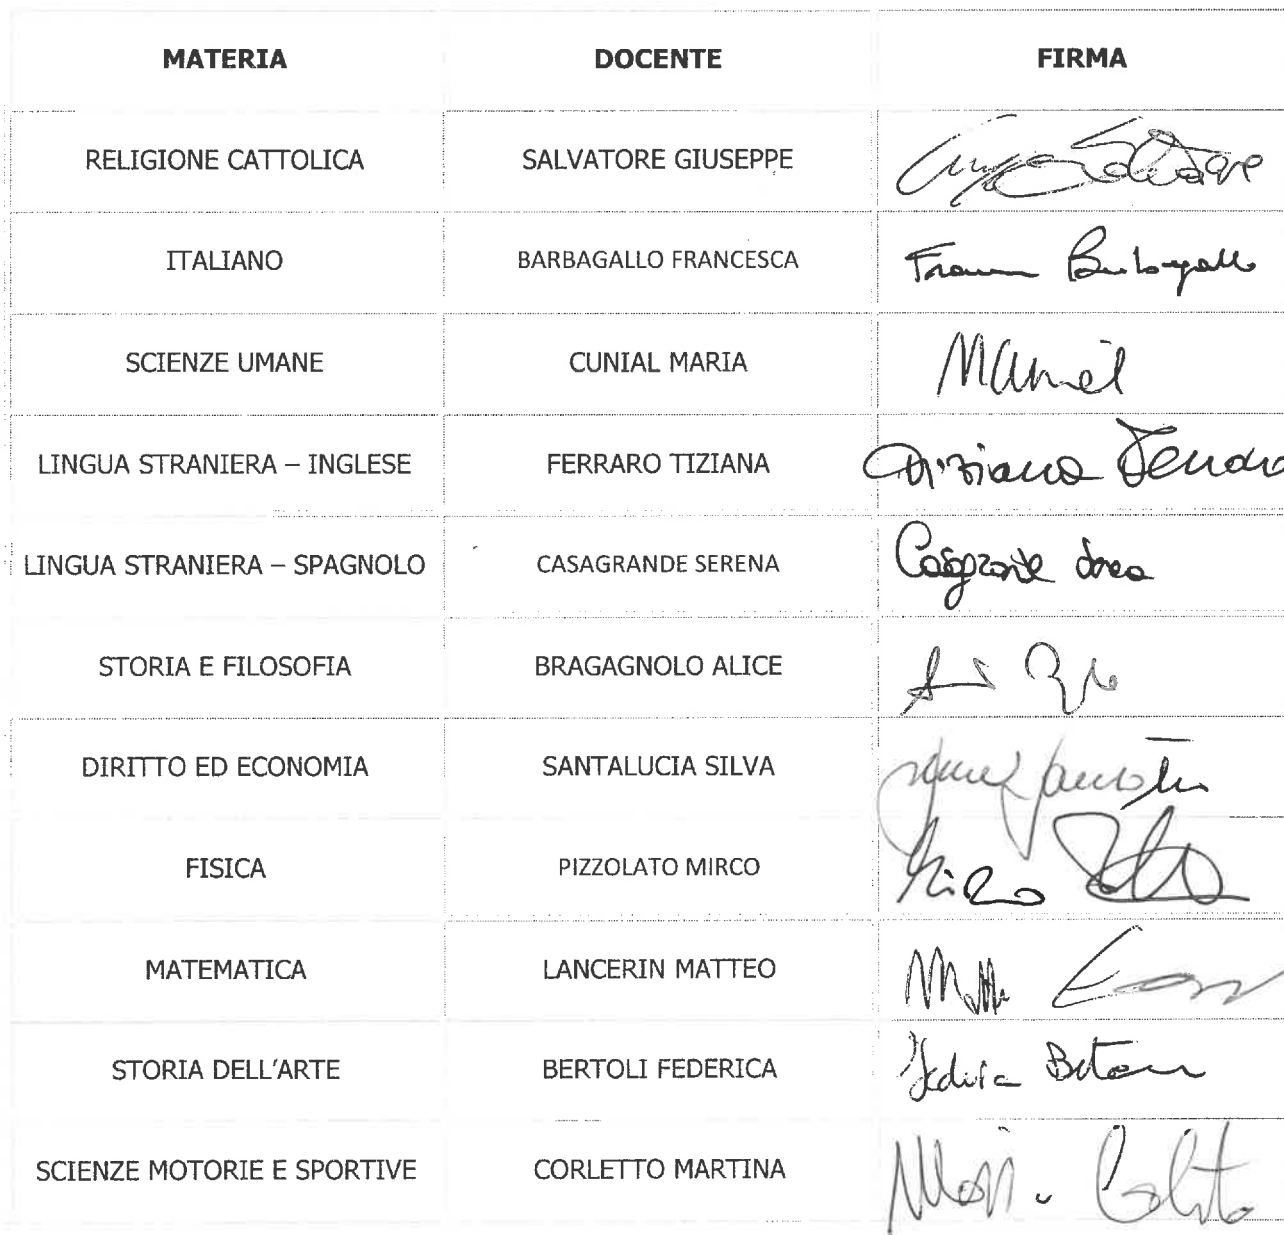 MATERIA DOCENTE FIRMA
RELIGIONE CATTOLICA SALVATORE GIUSEPPE
ITALIANO BARBAGALLO FRANCESCA Barbagallo
SCIENZE UMANE CUNIAL MARIA
LINGUA STRANIERA – INGLESE FERRARO TIZIANA Tiziana Ferraro
LINGUA STRANIERA – SPAGNOLO CASAGRANDE SERENA Casagrande
STORIA E FILOSOFIA BRAGAGNOLO ALICE
DIRITTO ED ECONOMIA SANTALUCIA SILVA
FISICA PIZZOLATO MIRCO Mirco
MATEMATICA LANCERIN MATTEO
STORIA DELL'ARTE BERTOLI FEDERICA
SCIENZE MOTORIE E SPORTIVE CORLETTO MARTINA